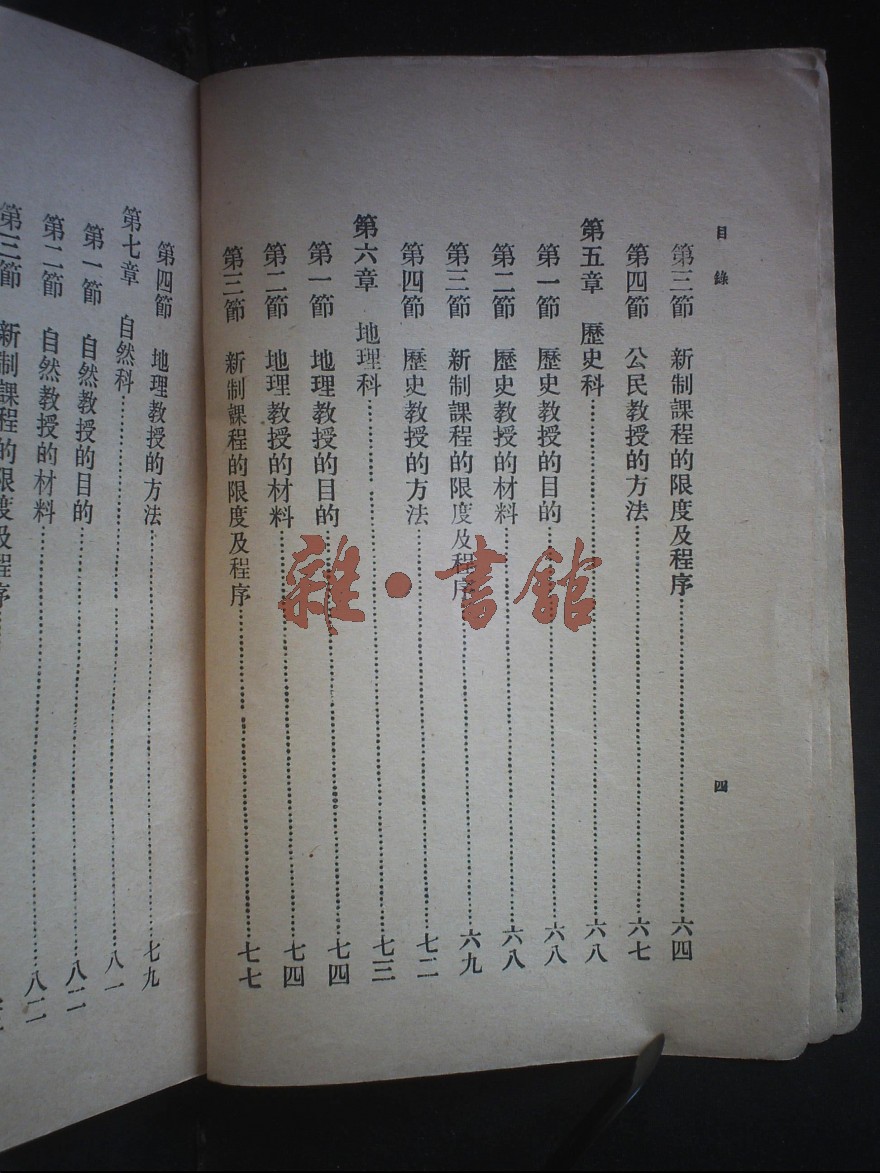 目錄
四
第三節 新制課程的限度及程序……六四
第四節 公民教授的方法……六七
第五章 歷史科……六八
第一節 歷史教授的目的……六八
第二節 歷史教授的材料……六八
第三節 新制課程的限度及程序……六九
第四節 歷史教授的方法……七二
第六章 地理科……七三
第一節 地理教授的目的……七四
第二節 地理教授的材料……七四
第三節 新制課程的限度及程序……七七
第四節 地理教授的方法……七九
第七章 自然科……八一
第一節 自然教授的目的……八二
第二節 自然教授的材料……八二
第三節 新制課程的限度及程序……
雜·書館